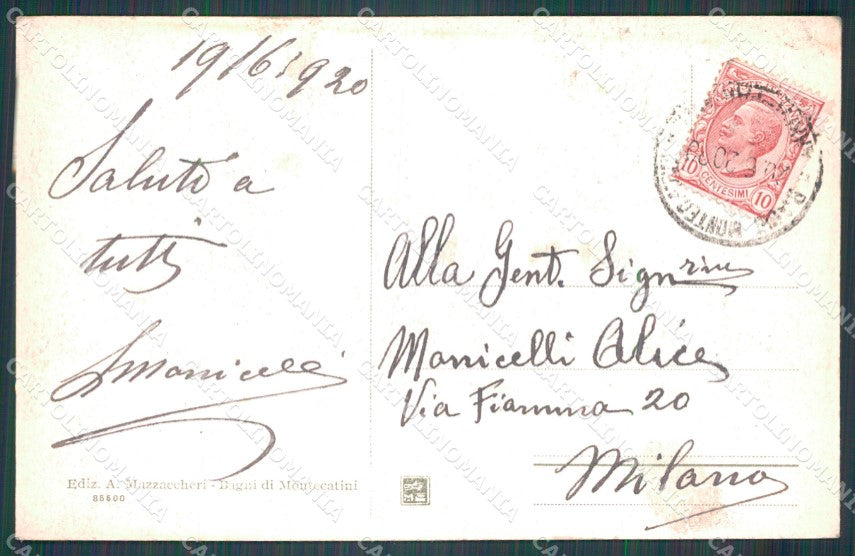 19/6/920
Saluti a
tutti
Monicelli
Alla Gent. Sign.rina
Monicelli Alice
Via Fiamma 20
Milano
Ediz. A. Mazzaccheri - Bagni di Montecatini
85500
10 CENTESIMI 10
CARTOLINOMANIA